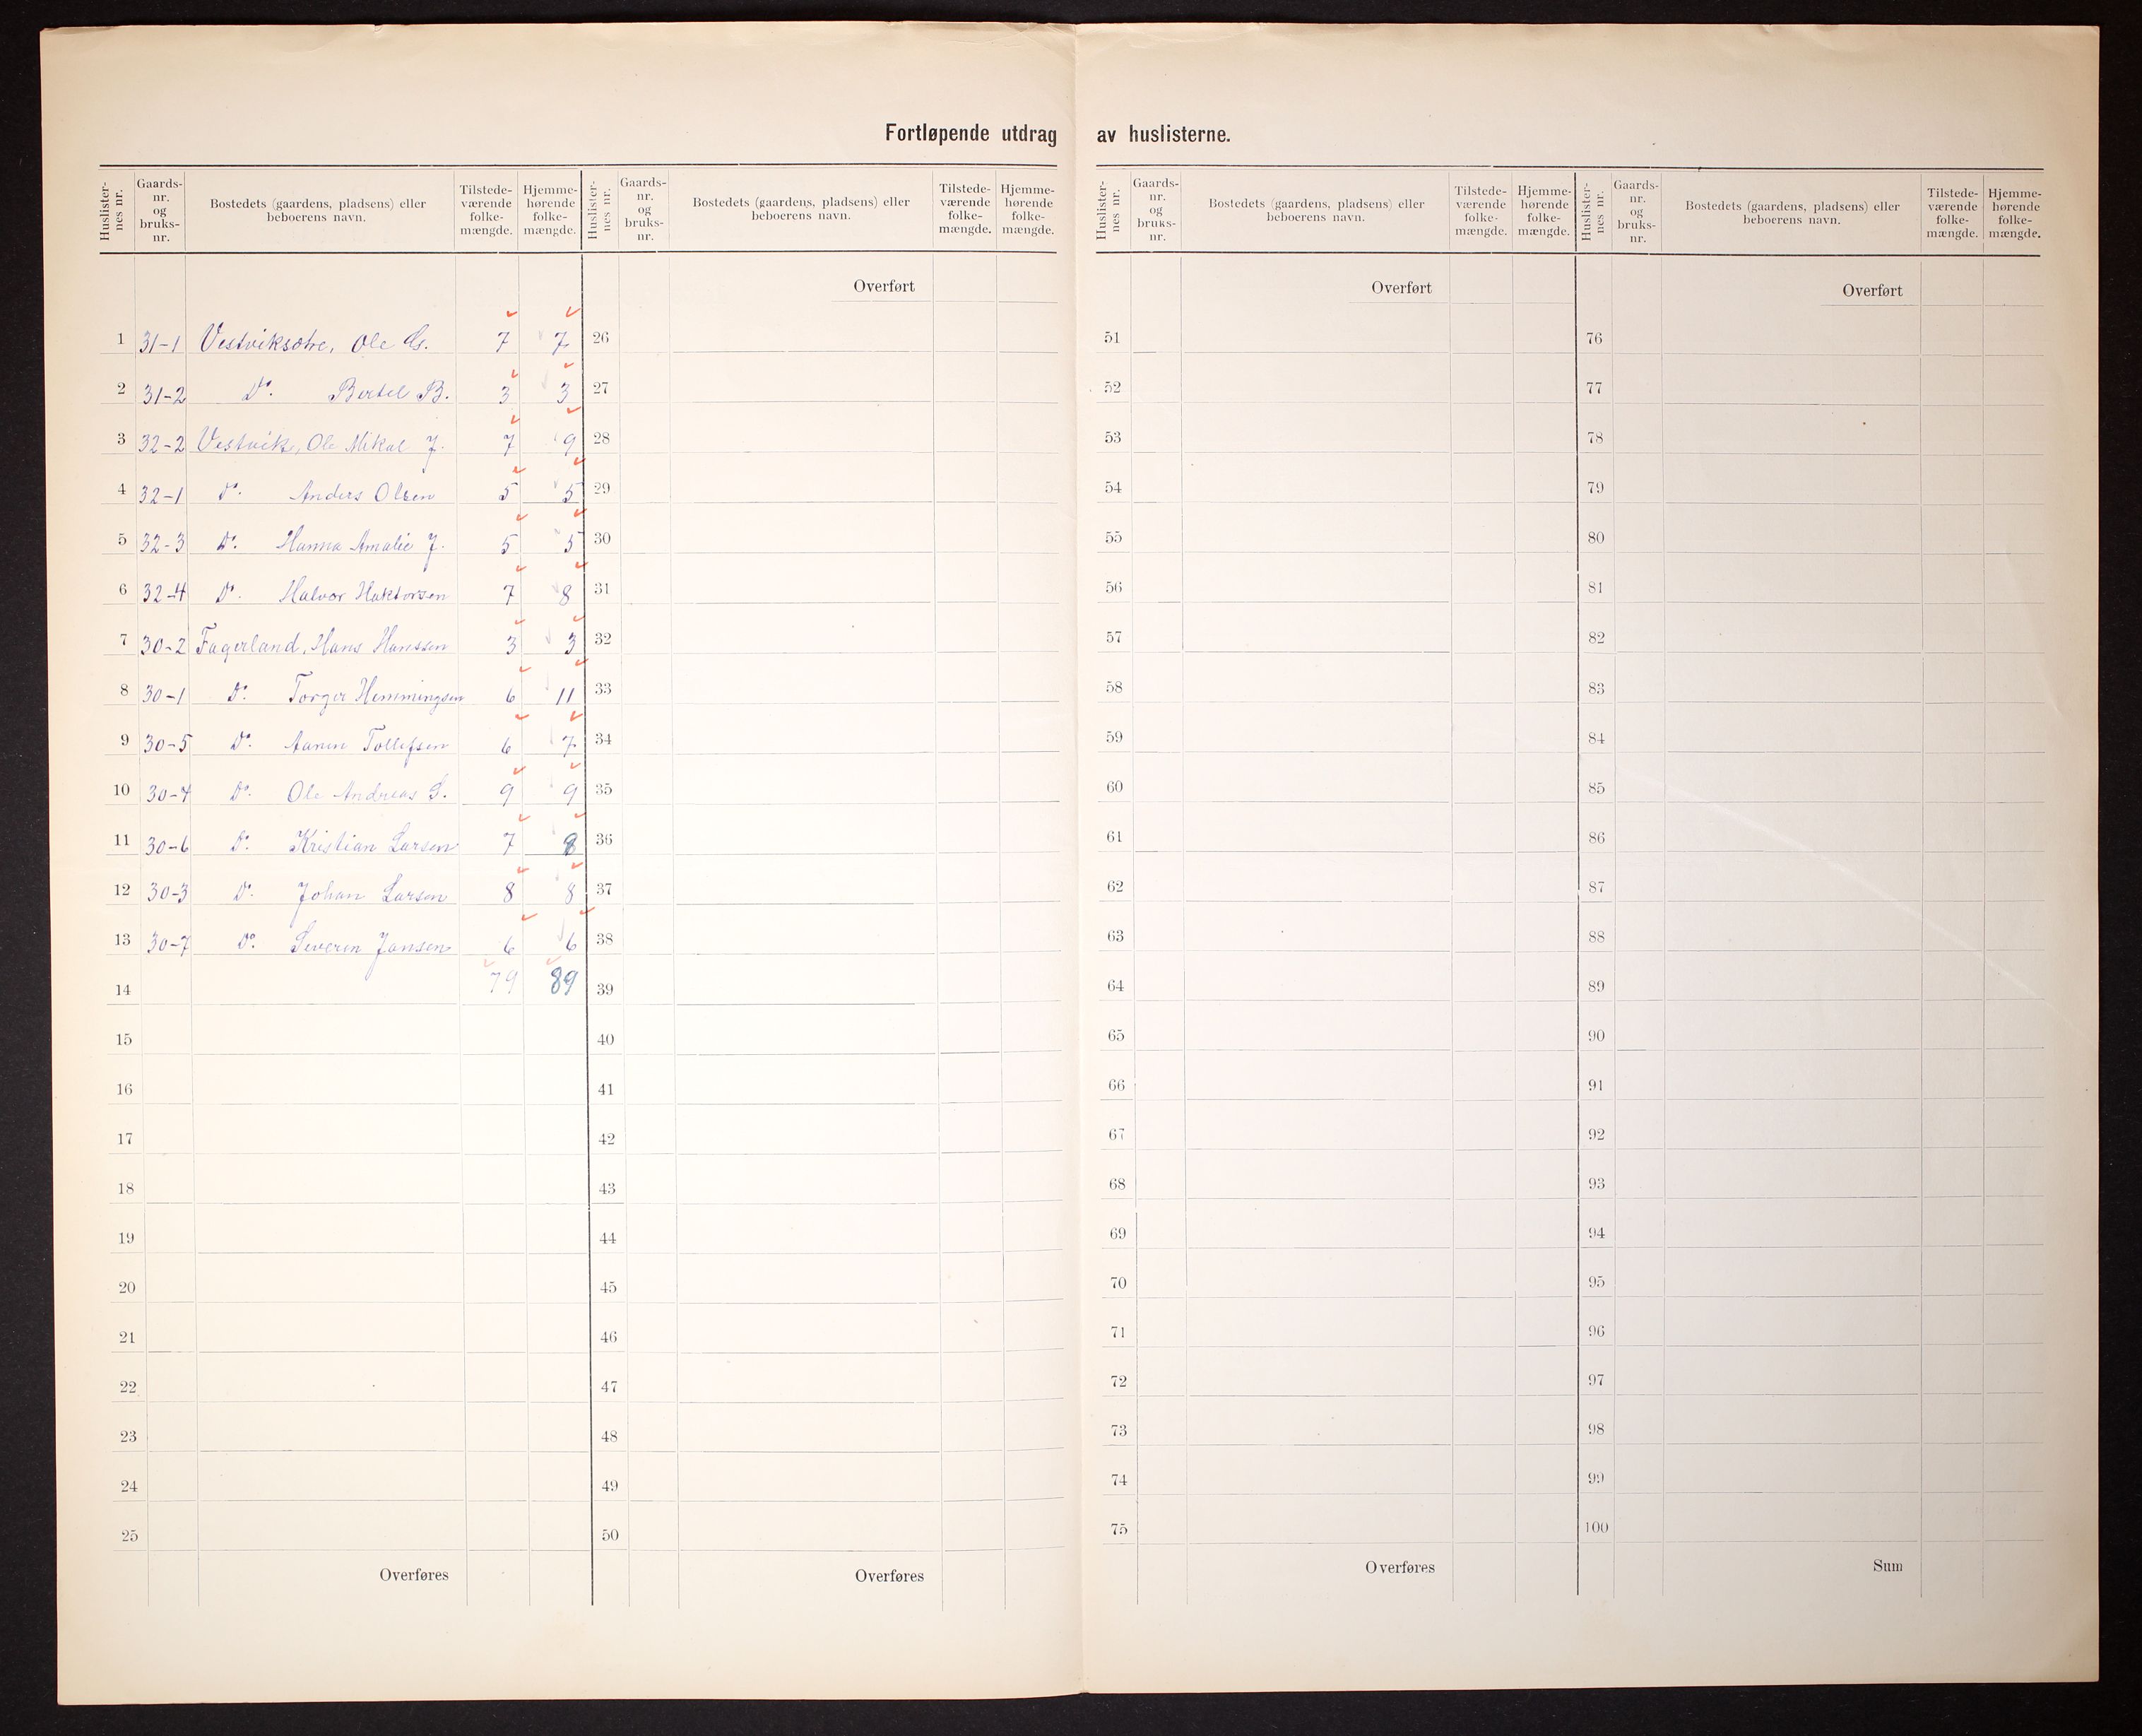 Fortløpende utdrag av huslisterne.
Huslister-nes nr. Gaards-nr. og bruks-nr. Bostedets (gaardens, pladsens) eller beboerens navn. Tilstede-værende folke-mængde. Hjemme-hørende folke-mængde.
1 31-1 Vestviksætre, Ole G. 7 7
2 31-2 Do. Bertel B. 3 3
3 32-2 Vestvik, Ole Mikal J. 7 9
4 32-1 Do. Anders Olsen 5 5
5 32-3 Do. Hanna Amalie J. 5 5
6 32-4 Do. Halvor Haktorsen 7 8
7 30-2 Fagerland, Hans Hanssen 3 3
8 30-1 Do. Torger Hemmingsen 6 11
9 30-5 Do. Tollefsen 6 7
10 30-4 Do. Ole Andreas S. 9 9
11 30-6 Do. Kristian Larsen 7 8
12 30-3 Do. Johan Larsen 8 8
13 30-7 Do. Severin Jansen 6 6
14 79 89
15
16
17
18
19
20
21
22
23
24
25
Overføres
Huslister-nes nr. Gaards-nr. og bruks-nr. Bostedets (gaardens, pladsens) eller beboerens navn. Tilstede-værende folke-mængde. Hjemme-hørende folke-mængde.
Overført
26
27
28
29
30
31
32
33
34
35
36
37
38
39
40
41
42
43
44
45
46
47
48
49
50
Overføres
Huslister-nes nr. Gaards-nr. og bruks-nr. Bostedets (gaardens, pladsens) eller beboerens navn. Tilstede-værende folke-mængde. Hjemme-hørende folke-mængde.
Overført
51
52
53
54
55
56
57
58
59
60
61
62
63
64
65
66
67
68
69
70
71
72
73
74
75
Overføres
Huslister-nes nr. Gaards-nr. og bruks-nr. Bostedets (gaardens, pladsens) eller beboerens navn. Tilstede-værende folke-mængde. Hjemme-hørende folke-mængde.
Overført
76
77
78
79
80
81
82
83
84
85
86
87
88
89
90
91
92
93
94
95
96
97
98
99
100
Sum